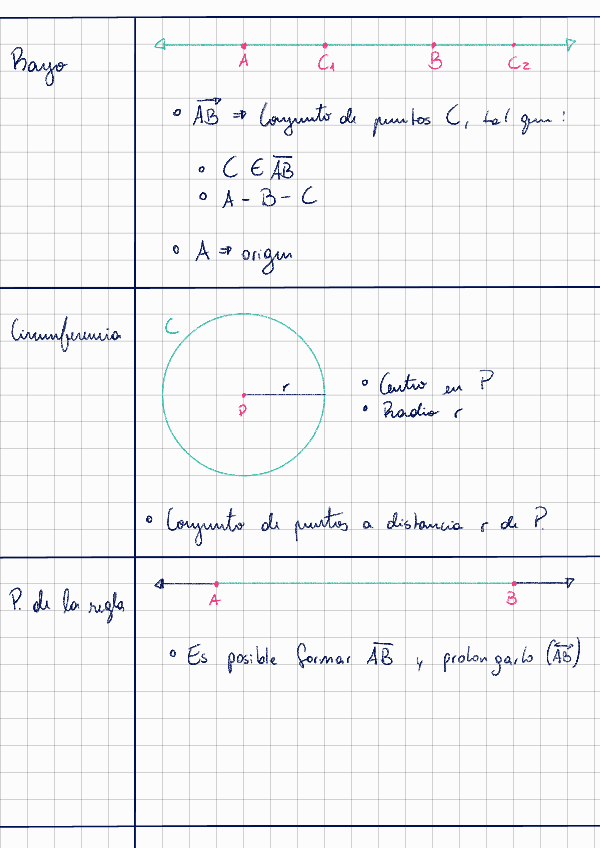 Rayo
A C₁ B C₂
• $\overrightarrow{AB}$ ⇒ Conjunto de puntos C, tal que:
• C ∈ $\overline{AB}$
• A - B - C
• A ⇒ origen
Circunferencia
C
r
P
• Centro en P
• Radio r
• Conjunto de puntos a distancia r de P.
P. de la regla
A B
• Es posible formar $\overline{AB}$ y prolongarlo ($\overleftrightarrow{AB}$)